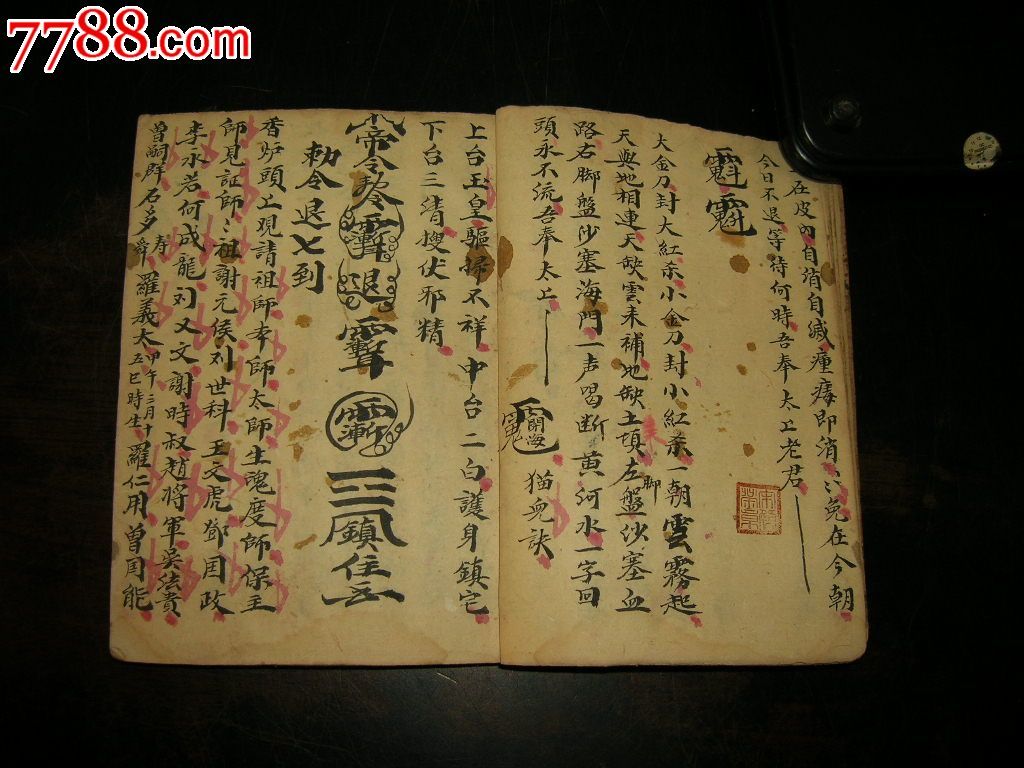 7788.com
在皮內自消自滅瘇痛即消六免在今朝
今日不退等待何時吾奉太上老君
大金刀封大紅朵小金刀封小紅朵一朝雲霧起
天與地相連天缺雲来補地缺土填左脚盤沙塞血
路右脚盤沙塞海門一声喝断黄河水一字回
頭永不流吾奉太上
猫兜訣
上台玉皇驅掃不祥中台二白護身鎮宅
下台三精搜伏邪精
帝令
退
鎮住
勅令退七到
香炉頭上現請祖師李師太師生魂度師保主
師見証師々祖謝元侯刘世科王文虎鄧国政
李水若何成龍刘又文謝時叔趙将軍吳法貴
曾嗣群石多壽羅義太甲午三月十五巳時生羅仁用曾国能